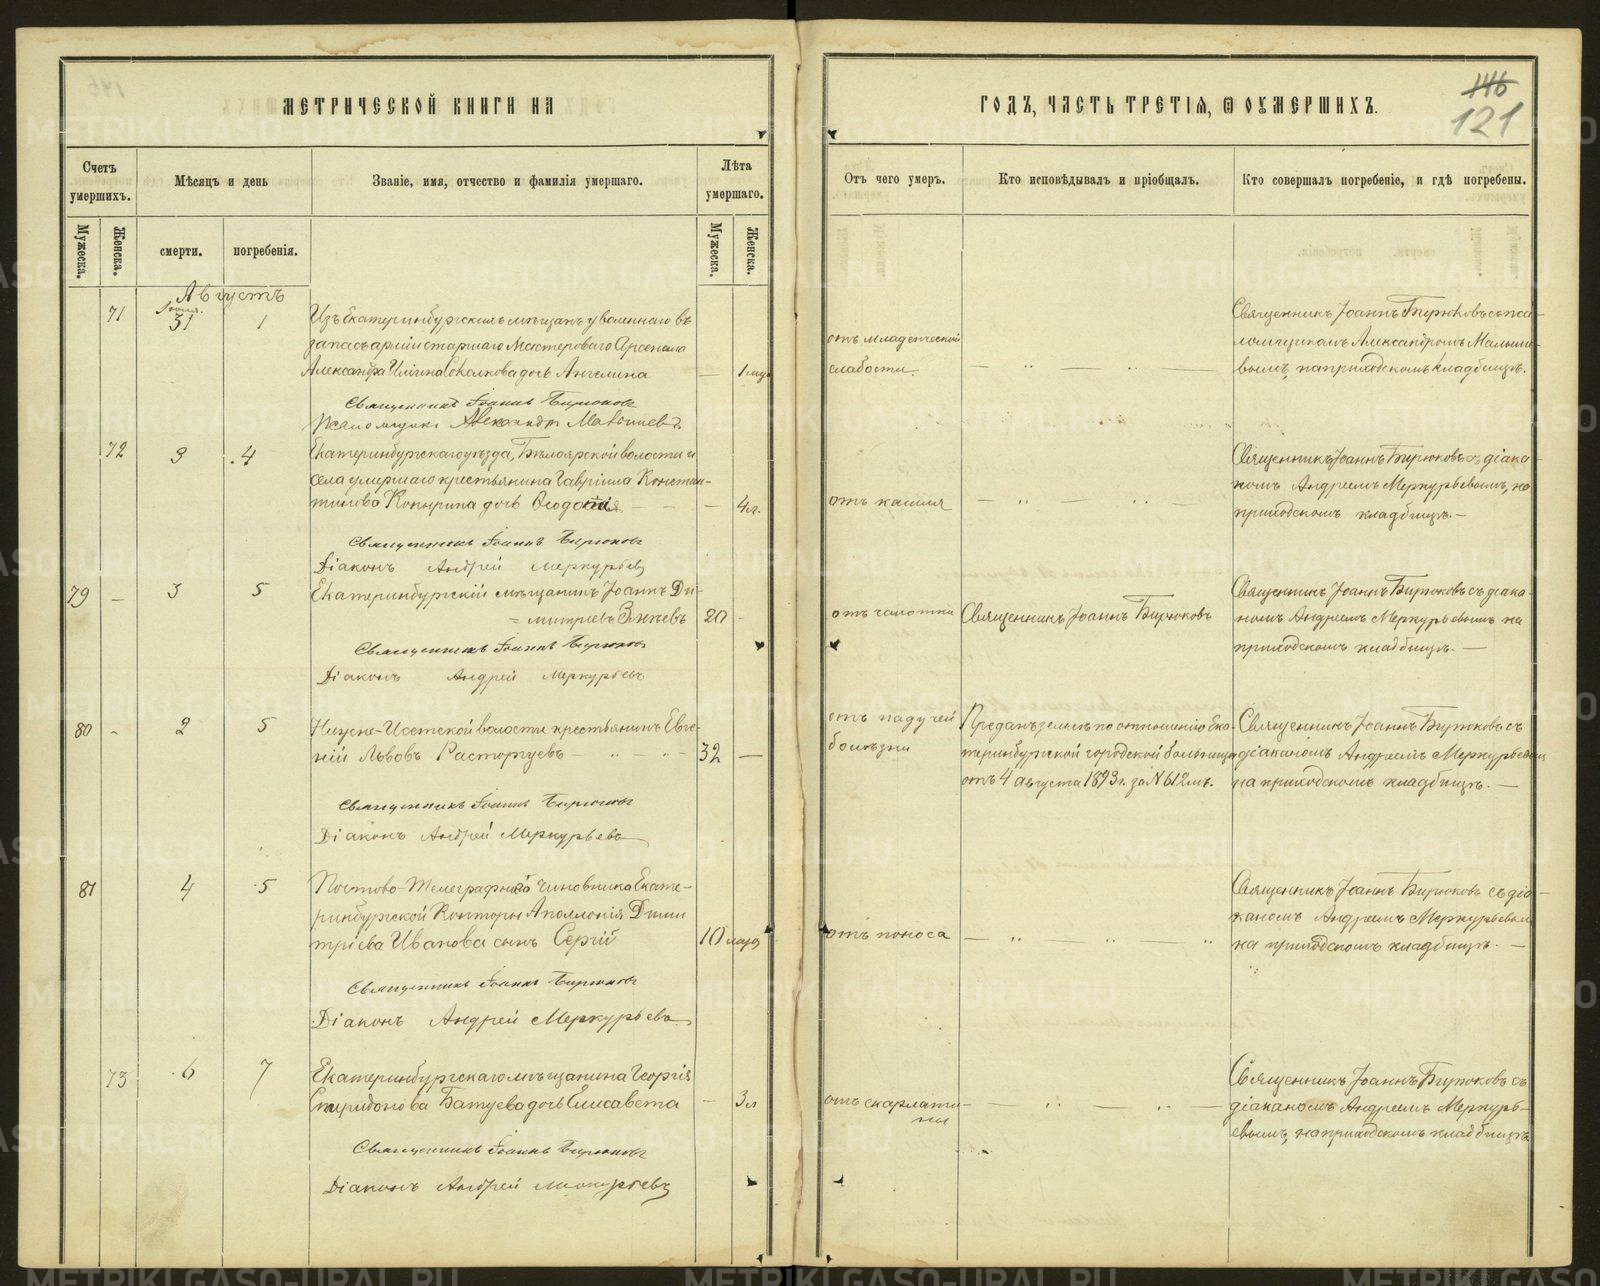 МЕТРИЧЕСКОЙ КНИГИ НА
ГОДЪ, ЧАСТЬ ТРЕТІЯ, Ѿ ОУМЕРШИХЪ.
146
121
Счетъ умершихъ.
Мѣсяцъ и день
Званіе, имя, отчество и фамилія умершаго.
Лѣта умершаго.
Отъ чего умеръ.
Кто исповѣдывалъ и пріобщалъ.
Кто совершалъ погребеніе, и гдѣ погребены.
Мужеска.
Женска.
смерти.
погребенія.
Мужеска.
Женска.
Августъ
71
Іюля.
31
1
Изъ Екатеринбургскихъ мѣщанъ уволеннаго въ
запасъ арміи старшаго Мастероваго Арсенала
Александра Ильина Соколкова дочь Ангелина
— 1 мѣс
отъ младенческой
слабости.
Священникъ Іоаннъ Бирюковъ съ пса-
ломщикомъ Александромъ Малыше-
вымъ, на приходскомъ кладбищѣ.
Священникъ Іоаннъ Бирюковъ
Псаломщикъ Александръ Малышевъ
72
3
4
Екатеринбургскаго уѣзда, Бѣлоярской волости и
села умершаго крестьянина Гавріила Констан-
тинова Копырина дочь Ѳеодосія
— 4 л.
отъ кашля
Священникъ Іоаннъ Бирюковъ съ діако-
номъ Андреемъ Меркурьевымъ, на
приходскомъ кладбищѣ.—
Священникъ Іоаннъ Бирюковъ
Діаконъ Андрей Меркурьевъ
79 —
3
5
Екатеринбургскій мѣщанинъ Іоаннъ Ди-
= митріевъ
20 -
отъ чахотки
Священникъ Іоаннъ Бирюковъ
Священникъ Іоаннъ Бирюковъ съ діако-
номъ Андреемъ Меркурьевымъ на
приходскомъ кладбищѣ. —
Священникъ Іоаннъ Бирюковъ
Діаконъ Андрей Меркурьевъ
80 -
2
5
Нижне-Исетской волости крестьянинъ Евге-
ній Львовъ Расторгуевъ
32 —
отъ падучей
болѣзни
Преданъ землѣ по отношенію Ека-
теринбургской городской больницы
отъ 4 августа 1893 г. за № 612мъ.
Священникъ Іоаннъ Бирюковъ съ
діакономъ Андреемъ Меркурьевымъ
на приходскомъ кладбищѣ. —
Священникъ Іоаннъ Бирюковъ
Діаконъ Андрей Меркурьевъ
81
4
5
Почтово-Телеграфнаго чиновника Екате-
ринбургской Конторы Аполлонія Дими
тріева Иванова сынъ Сергій
10 мѣсяц
отъ поноса
Священникъ Іоаннъ Бирюковъ съ діа-
кономъ Андреемъ Меркурьевымъ
на приходскомъ кладбищѣ. —
Священникъ Іоаннъ Бирюковъ
Діаконъ Андрей Меркурьевъ
73
6
7
Екатеринбургскаго мѣщанина Георгія
Спиридонова Батуева дочь Елисавета
— 3 л
отъ скарлати-
ны
Священникъ Іоаннъ Бирюковъ съ
діакономъ Андреемъ Меркурь-
евымъ, на приходскомъ кладбищѣ.
Священникъ Іоаннъ Бирюковъ
Діаконъ Андрей Меркурьевъ
METRIKI.GASO-URAL.RU